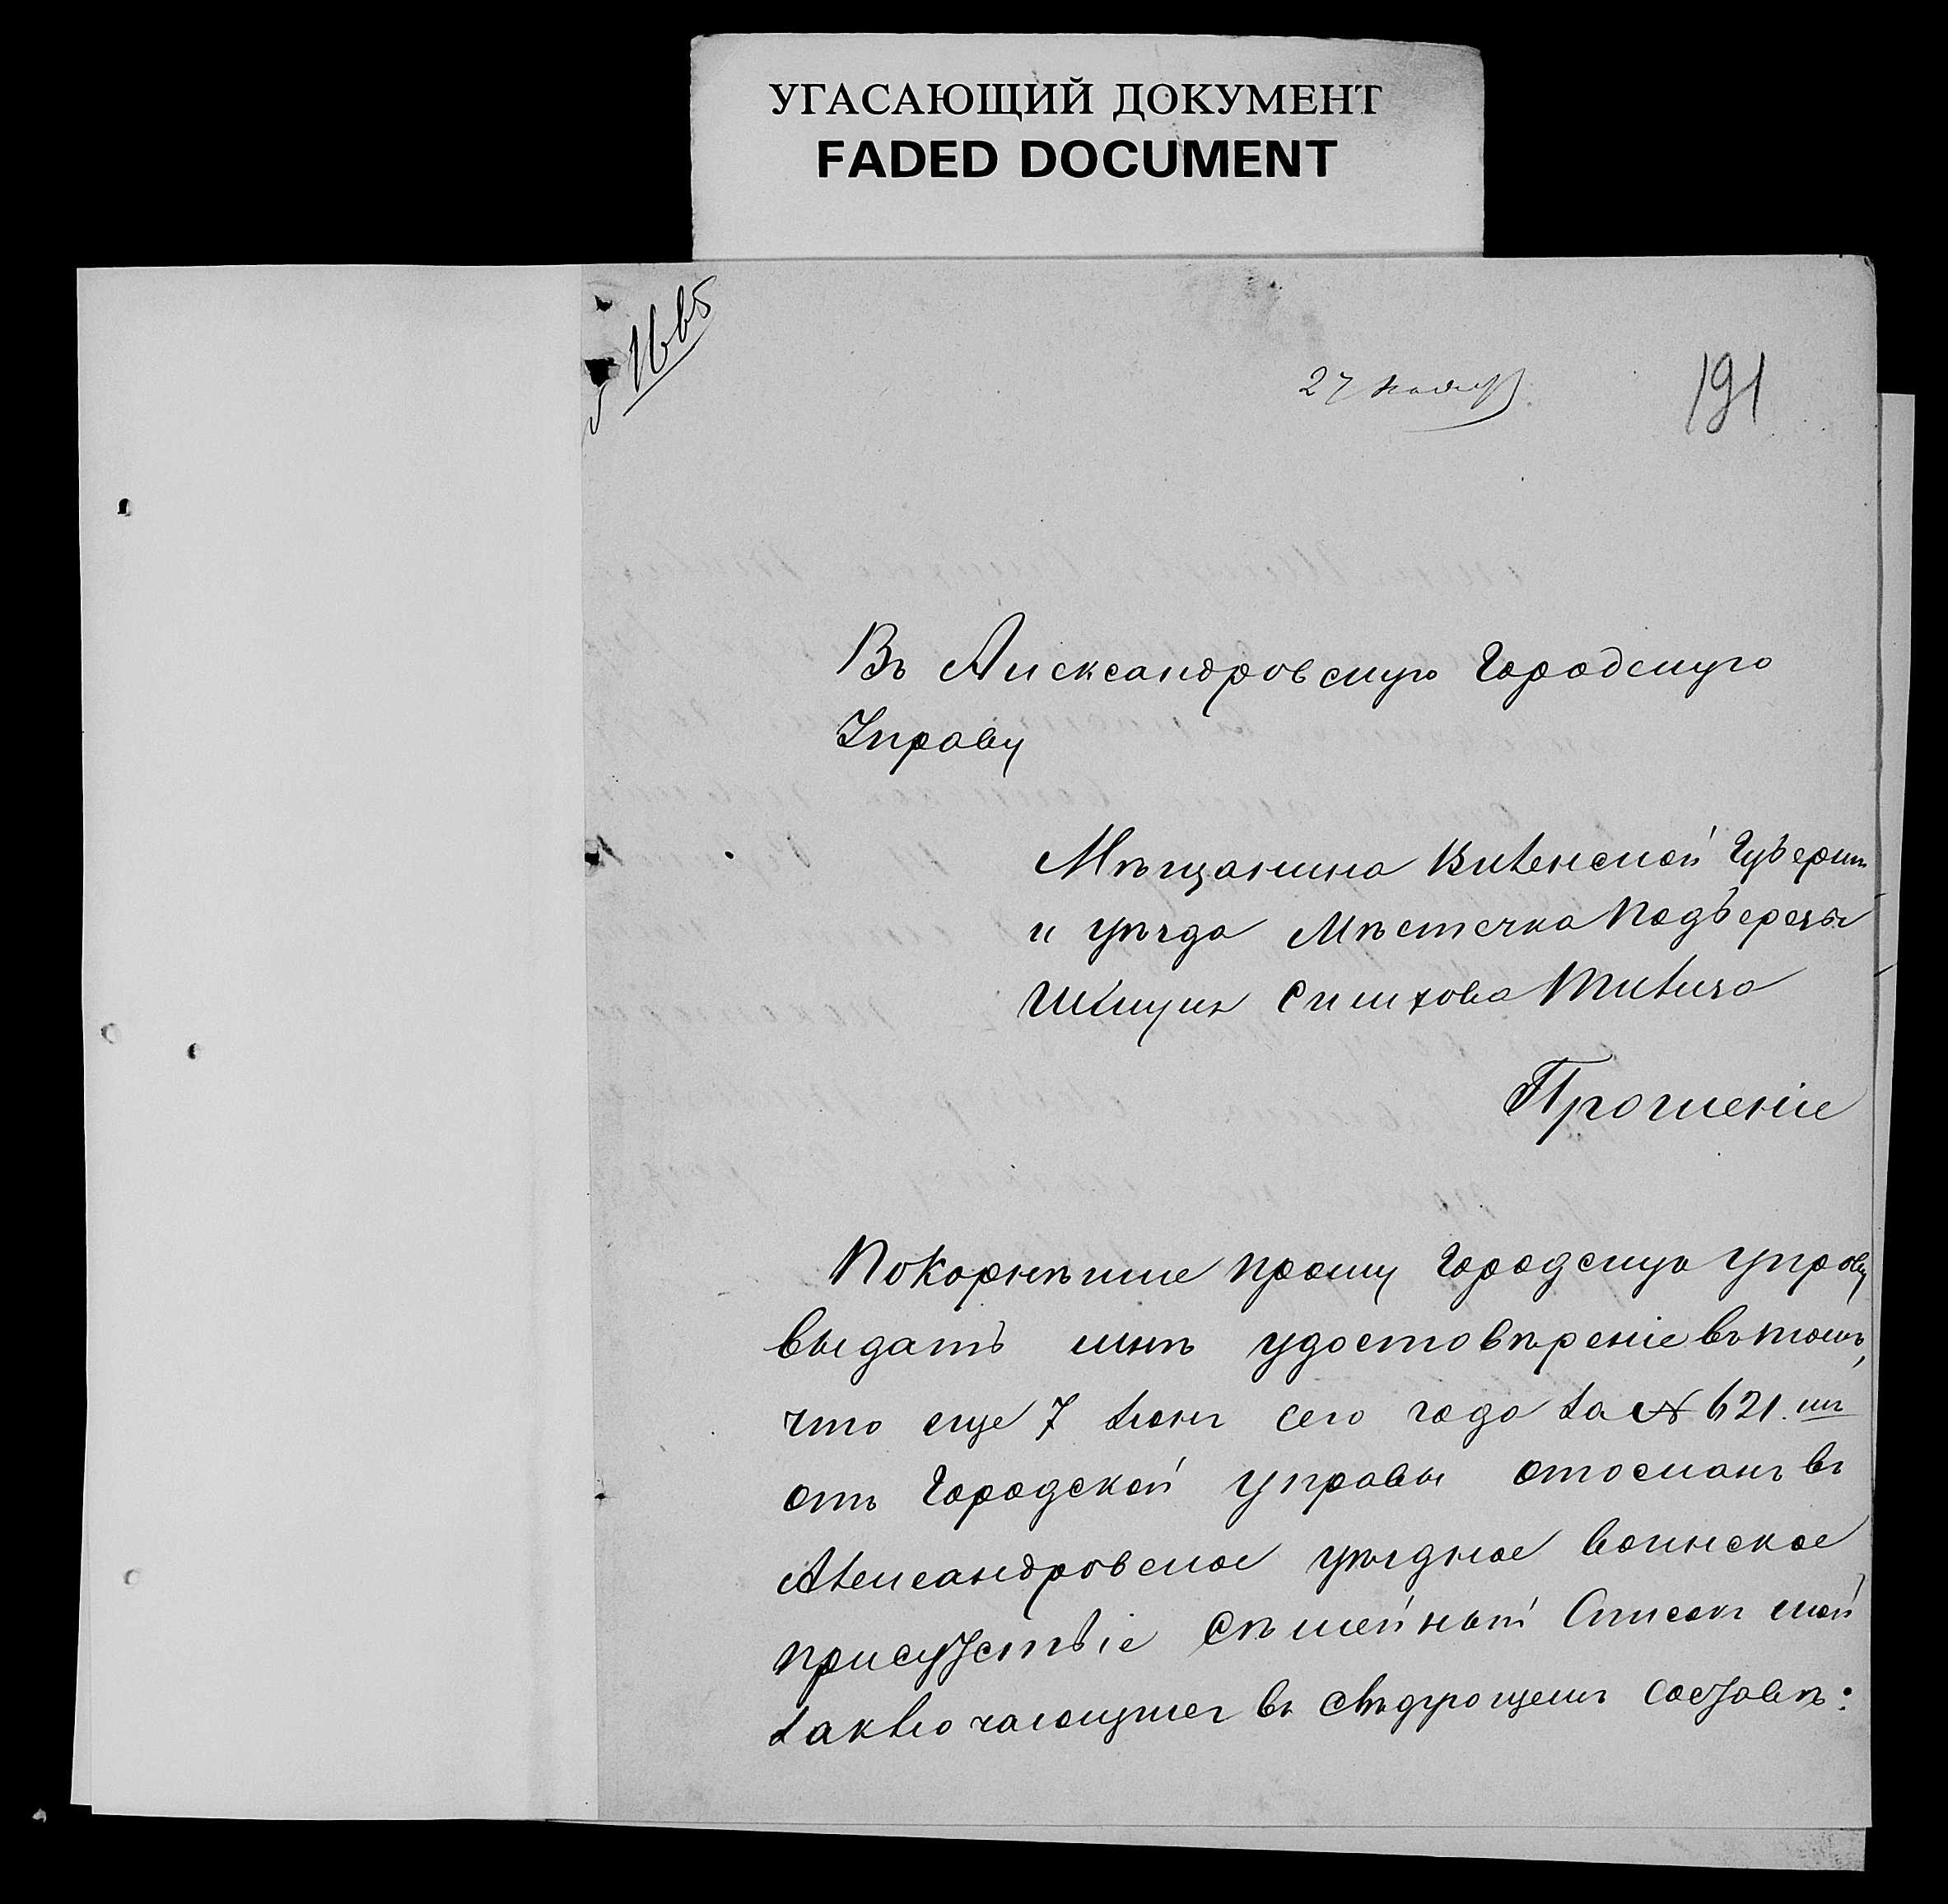 УГАСАЮЩИЙ ДОКУМЕНТ
FADED DOCUMENT
1665
27 Ноября
191
Въ Александровскую Городскую
Управу
Мѣщанина Виленской Губерніи
и уѣзда Мѣстечка Подберезы
Прошеніе
Покорнѣйше прошу Городскую Управу
выдать мнѣ удостовѣреніе въ томъ,
что еще 7 Іюня сего года за № 621
отъ Городской Управы отосланъ въ
Александровское уѣздное воинское
присутствіе Сѣмейный Списокъ мой
заключающійся въ слѣдующемъ составѣ: